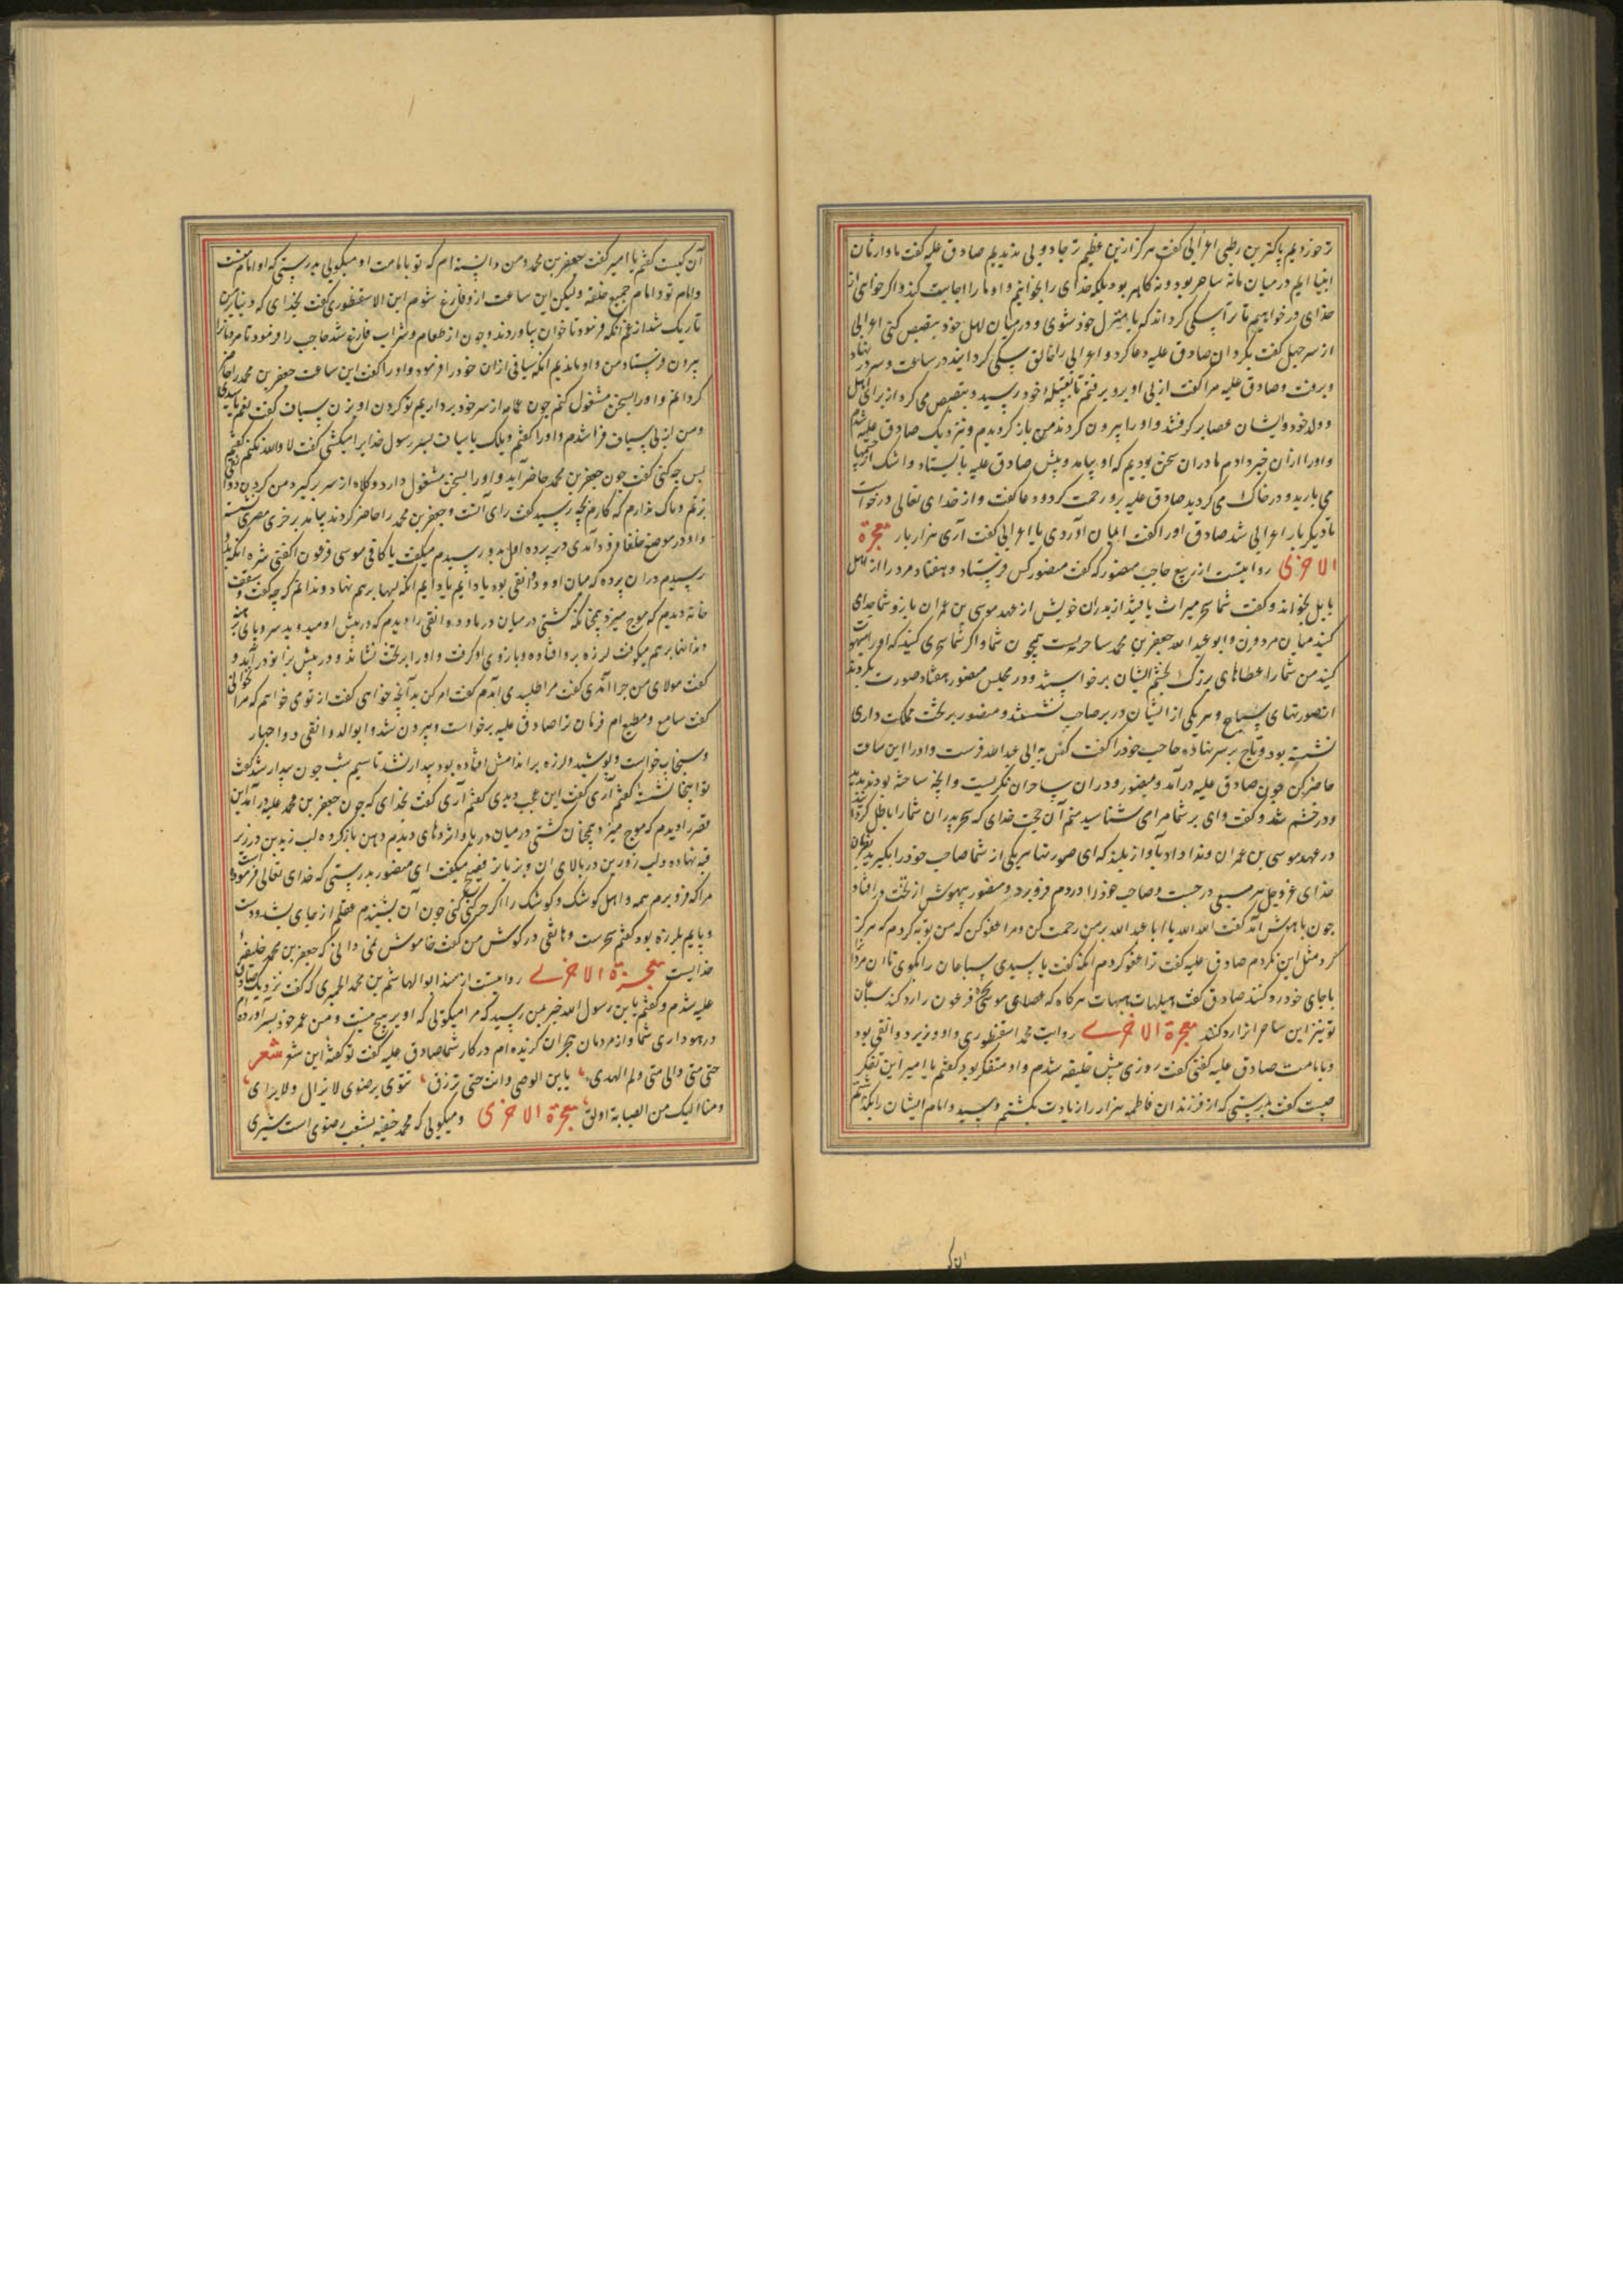 خوردیم پاکترین رطبی اعرابی گفت هرگز ازین عظیم تر جادویی ندیدیم صادق علیه گفت ما وارثان
انبیا ایم در میان ما نه ساحر بود و نه کاهن بود بلکه خدای را بخوانیم و او ما را اجابت کند و اگر خواهی از
خدای در خواهیم تا ترا سگی گرداند که با منزل خود شوی و در میان اهل خود تبصبص کنی اعرابی
از سر جهل گفت بکر دان صادق علیه دعا کرد و اعرابی را خالق سگی گردانید در ساعت و سر در نهاد
و برفت و صادق علیه مرا گفت از پی او برو برفتم تا بقبیله خود رسید و تبصبص می کرد از برای اهل
و ولد خود و ایشان عصا بر گرفتند و او را بیرون کردند من باز گردیدم و نزدیک صادق علیه شدم
و او را از ان خبر دادم ما در ان سخن بودیم که او بیامد و پیش صادق علیه بایستاد و اشک از چشمها
می بارید و در خاک می گردید صادق علیه برو رحمت کرد و دعا گفت و از خدای تعالی درخواست
تا دیگر بار اعرابی شد صادق او را گفت ایمان آوردی یا اعرابی گفت آری هزار بار معجزة
الاخری روایتست از ربیع حاجب منصور که گفت منصور کس فرستاد و هفتاد مرد را از اهل
بابل بخواند و گفت شما سحر میراث یافتید از پدران خویش از عهد موسی بن عمران باز و شما جدای
کنید میان مرد و زن و ابو عبد الله جعفر بن محمد ساحریست همچون شما و اگر شما سحری کنید که او را مبهوت
کنید من شما را عطاهای بزرگ بخشم ایشان برخواستند و در مجلس منصور هفتاد صورت بکردند
از صورتهای سباع و هر یکی از ایشان در بر صاحب نشستند و منصور بر تخت مملکت داری
نشسته بود و تاج بر سر نهاده حاجب خود را گفت کس به ابی عبد الله فرست و او را این ساعت
حاضر کن چون صادق علیه درآمد و بمنصور و در ان ساحران نگریست و انچه ساخته بودند بدید
و در خشم شد و گفت وای بر شما مرا می شناسید منم آن حجت خدای که سحر پدران شما را باطل کرد
در عهد موسی بن عمران و ندا داد بآواز بلند که ای صورتها هر یکی از شما صاحب خود را بگیرید بفرمان
خدای عز و جل هر سبعی در جست و صاحب خود را در دم فرو برد و منصور بیهوش از تخت در افتاد
چون باهوش آمد گفت الله الله یا ابا عبد الله بر من رحمت کن و مرا عفو کن که من توبه کردم که هرگز
دگر مثل این نکردم صادق علیه گفت ترا عفو کردم انگه گفت یا سیدی سباعان را بگوی تا ان مردان را
باجای خود رد کنند صادق گفت هیهات هیهات هرگاه که عصای موسی سحره فرعون را رد کند سباعان
تو نیز این ساحرانرا رد کنند معجزة الاخری روایت محمد اسقنطوری و او وزیر دوانقی بود
و بامامت صادق علیه گفتی گفت روزی پیش خلیفه شدم و او متفکر بود گفتم یا امیر این تفکر
چیست گفت بدرستی که از فرزندان فاطمه هزار را زیادت بکشتم و سید و امام ایشان را بگذاشتم
ان ک
آن کیست گفتم یا امیر گفت جعفر بن محمد و من دانسته ام که تو بامامت او میگویی بدرستی که او امام منست
و امام تو و امام جمیع خلقه ولیکن این ساعت ازو فارغ شوم ابن الاسقنطوری گفت بخدای که دنیا بر من
تاریک شد از غم انگه فرمود تا خوان بیاوردند و چون از طعام و شراب فارغ شد حاجب را فرمود تا مردمانرا
بیرون فرستاد من و او ماندیم انگه سیافی از ان خود را فرمود و او را گفت این ساعت جعفر بن محمد را حاضر
گردانم و او را بسخن مشغول کنم چون عمامه از سر خود برداریم تو گردن او بزن سیاف گفت نعم یا سیدی
و من از پی سیاف فرا شدم و او را گفتم ویلک یا سیاف پسر رسول خدایرا میکشی گفت لا والله نکنم گفتم
پس چه کنی گفت چون جعفر بن محمد حاضر آید و او را بسخن مشغول دارد و کلاه از سر برگیرد من گردن دوانقی
بزنم و باک ندارم که کارم بچه رسد گفت رای آنست و جعفر بن محمد را حاضر کردند بیامد بر خری مصری نشسته
و او در موضع خلفا فرود آمدی در پرده اول بدو رسیدم میگفت یا کافی موسی فرعون اکفنی شره انگه بدو
رسیدم در ان پرده که میان او و دوانقی بود یا دایم یا دایم انگه لبها بر هم نهاد و ندانم که چه گفت سقف
خانه دیدم که موج میزد همچنانکه کشتی در میان دریا و دوانقی را دیدم که در پیش او میدوید سر و پای برهنه
و دندانها بر هم میکوفت لرزه برو افتاده و بازوی او گرفت و او را بر تخت نشاند و در پیش بزانو در آمد و
گفت مولای من چرا آمدی گفت مرا طلبیدی آمدم گفت امر کن بدآنچه خواهی گفت از تو می خواهم که مرا نخوانی
گفت سامع و مطیع ام فرمان ترا صادق علیه برخواست و بیرون شد و ابو الدوانقی دواجها
و سنجاب خواست و بپوشید و لرزه بر اندامش افتاده بود بیدار نشد تا نیم شب چون بیدار شد گفت
تو اینجا نشستۀ گفتم آری گفت این عجب دیدی گفتم آری گفت بخدای که چون جعفر بن محمد علیه در آمد این
قصر را دیدم که موج میزد همچنان کشتی در میان دریا و اژدهای دیدم دهن باز کرده لب زیرین در زیر
قبه نهاده و لب زورین در بالای ان و بزبانی فصیح میگفت ای منصور بدرستی که خدای تعالی فرمود
مرا که فرو برم همه و اهل کوشک و کوشک را اگر حرکتی کنی چون آن بشنیدم عقلم از جای بشد و دست
و پایم بلرزه بود گفتم سحرست و هاتفی در گوش من گفت خاموش نمی دانی که جعفر بن محمد خلیفه
خدایست معجزة الاخری روایتست از مسند ابو الهاشم بن محمد الحمیری که گفت نزدیک صادق
علیه شدم و گفتم یابن رسول الله خبر بمن رسید که مرا میگویی که او بر هیچ نیست و من عمر خود بسر آورده ام
در هوا داری شما و از مردمان هجران گزیده ام در کار شما صادق علیه گفت تو گفتۀ این شعر شعر
حتی متی والی متی وکم المدی یابن الوصی وانت حی ترزق تثوی برضوی لا تزال ولا تری
ومنا الیک من الصبابة اولق معجزة الاخری و میگویی که محمد حنفیه بشعب رضوی است شیری